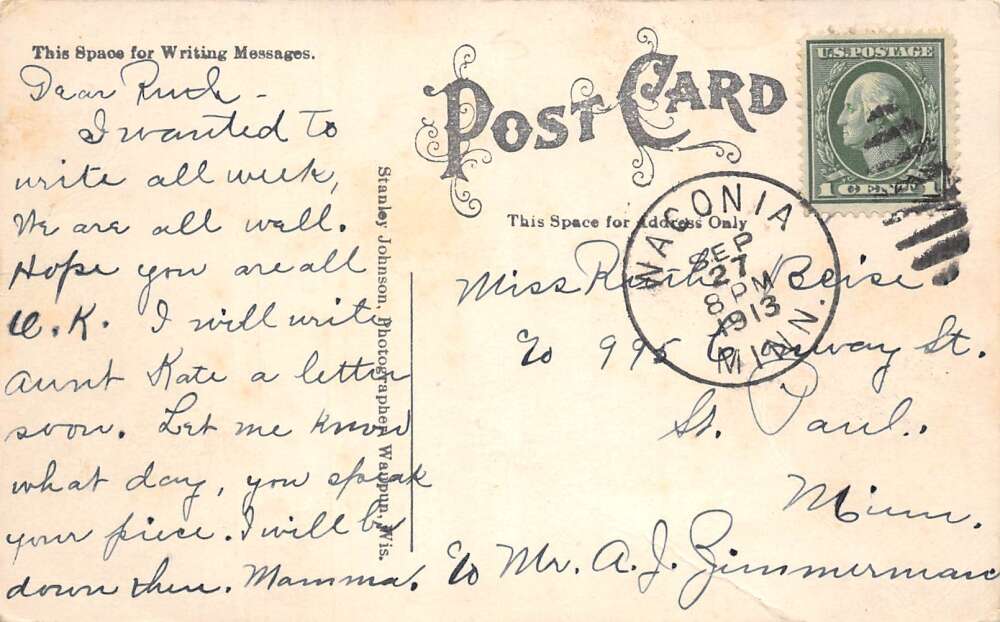 This Space for Writing Messages.
Dear Ruth -
I wanted to
write all week,
We are all well.
Hope you are all
O.K. I will write
Aunt Kate a letter
soon. Let me know
what day, you speak
your piece. I will be
down then. Mamma.
Stanley Johnson, Photographer, Waupun, Wis.
POST CARD
This Space for Address Only
U.S. POSTAGE
1 CENT 1
WACONIA
SEP
27
8 PM
1913
MINN.
Miss Ruth Beise
c/o 995 Conway St.
St. Paul.
Minn.
c/o Mr. A. J. Zimmerman